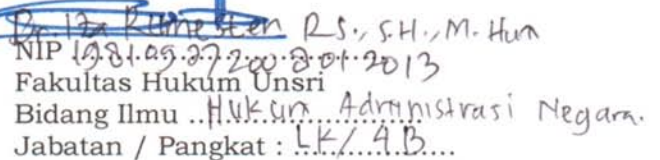 Dr. Iza Rumesten RS., S.H., M.Hum
NIP 198109272008012013
Fakultas Hukum Unsri
Bidang Ilmu ..Hukum Administrasi Negara.
Jabatan / Pangkat : LK/ 4B....